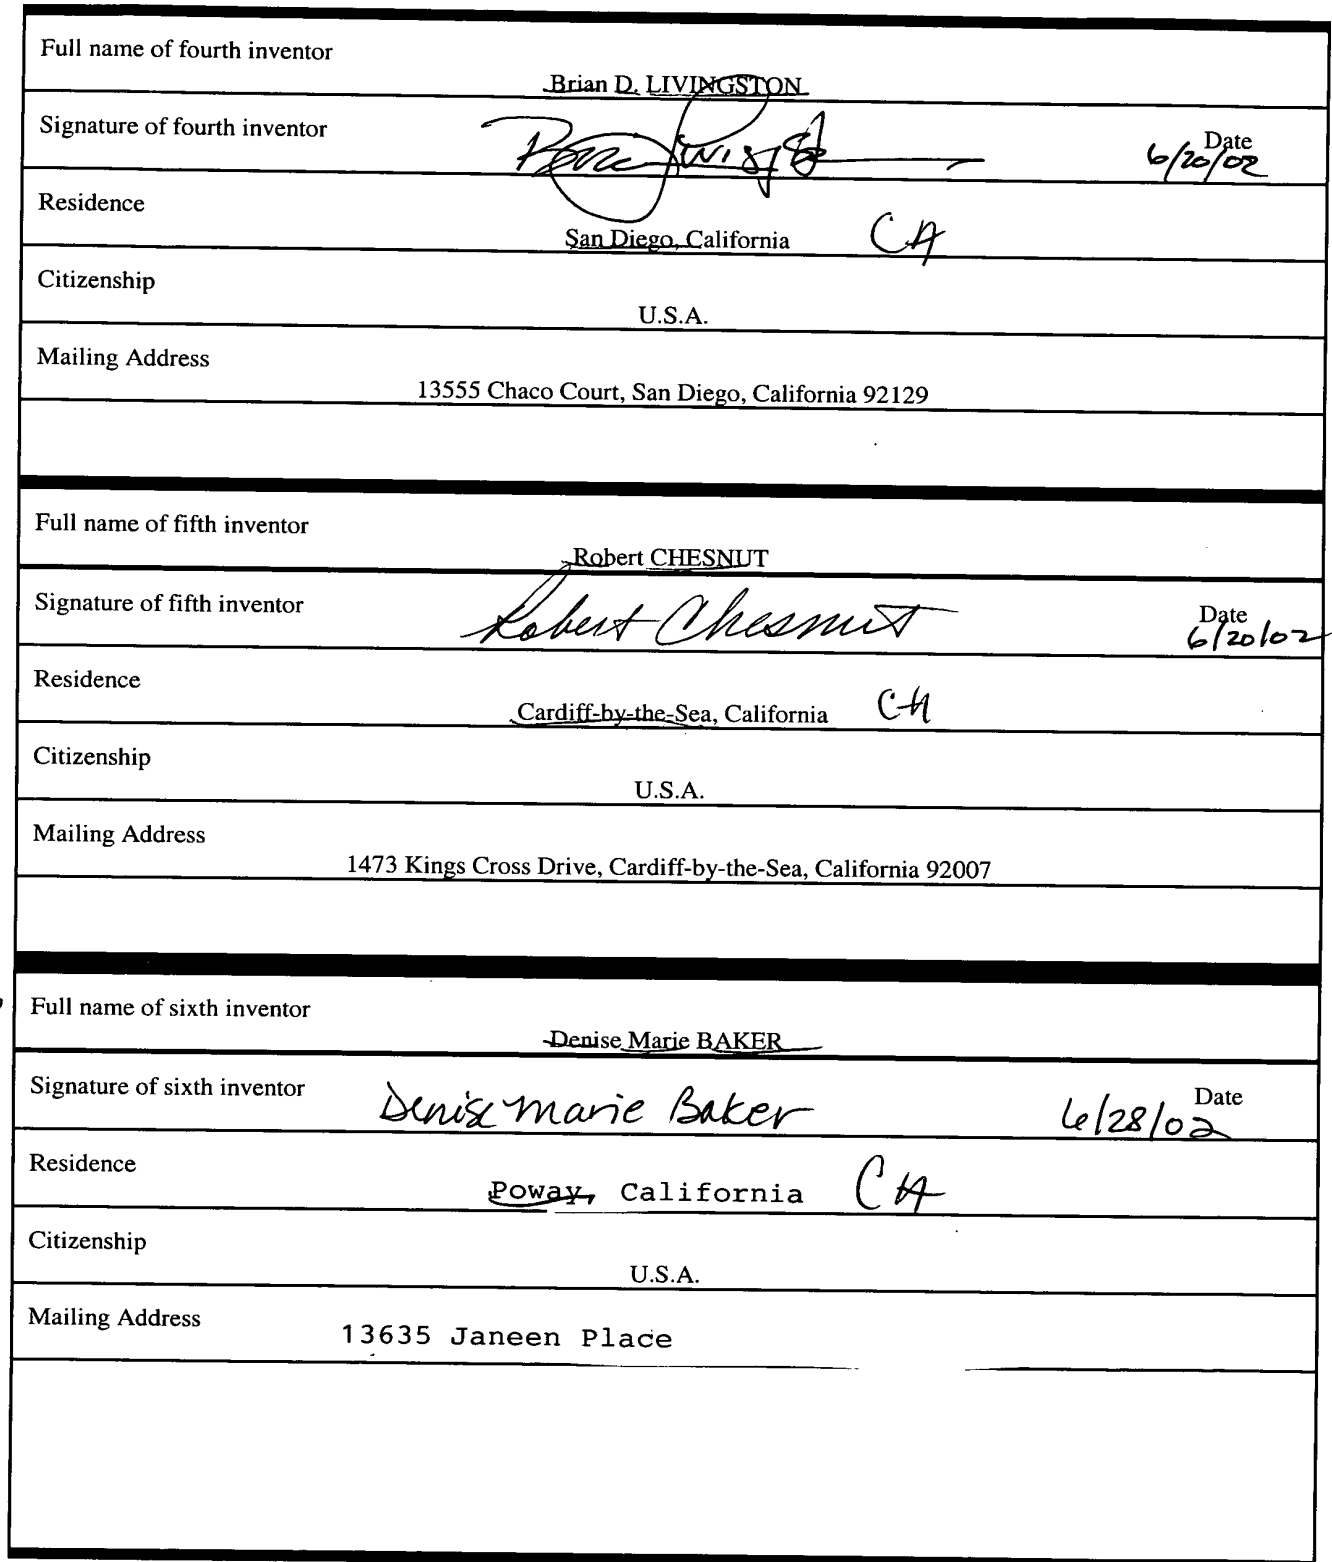 Full name of fourth inventor
Brian D. LIVINGSTON
Signature of fourth inventor
Date
6/20/02
Residence
San Diego, California CA
Citizenship
U.S.A.
Mailing Address
13555 Chaco Court, San Diego, California 92129
Full name of fifth inventor
Robert CHESNUT
Signature of fifth inventor Robert Chesnut
Date
6/20/02
Residence
Cardiff-by-the-Sea, California CA
Citizenship
U.S.A.
Mailing Address
1473 Kings Cross Drive, Cardiff-by-the-Sea, California 92007
Full name of sixth inventor
Denise Marie BAKER
Signature of sixth inventor Denise Marie Baker
Date
6/28/02
Residence
Poway, California CA
Citizenship
U.S.A.
Mailing Address
13635 Janeen Place